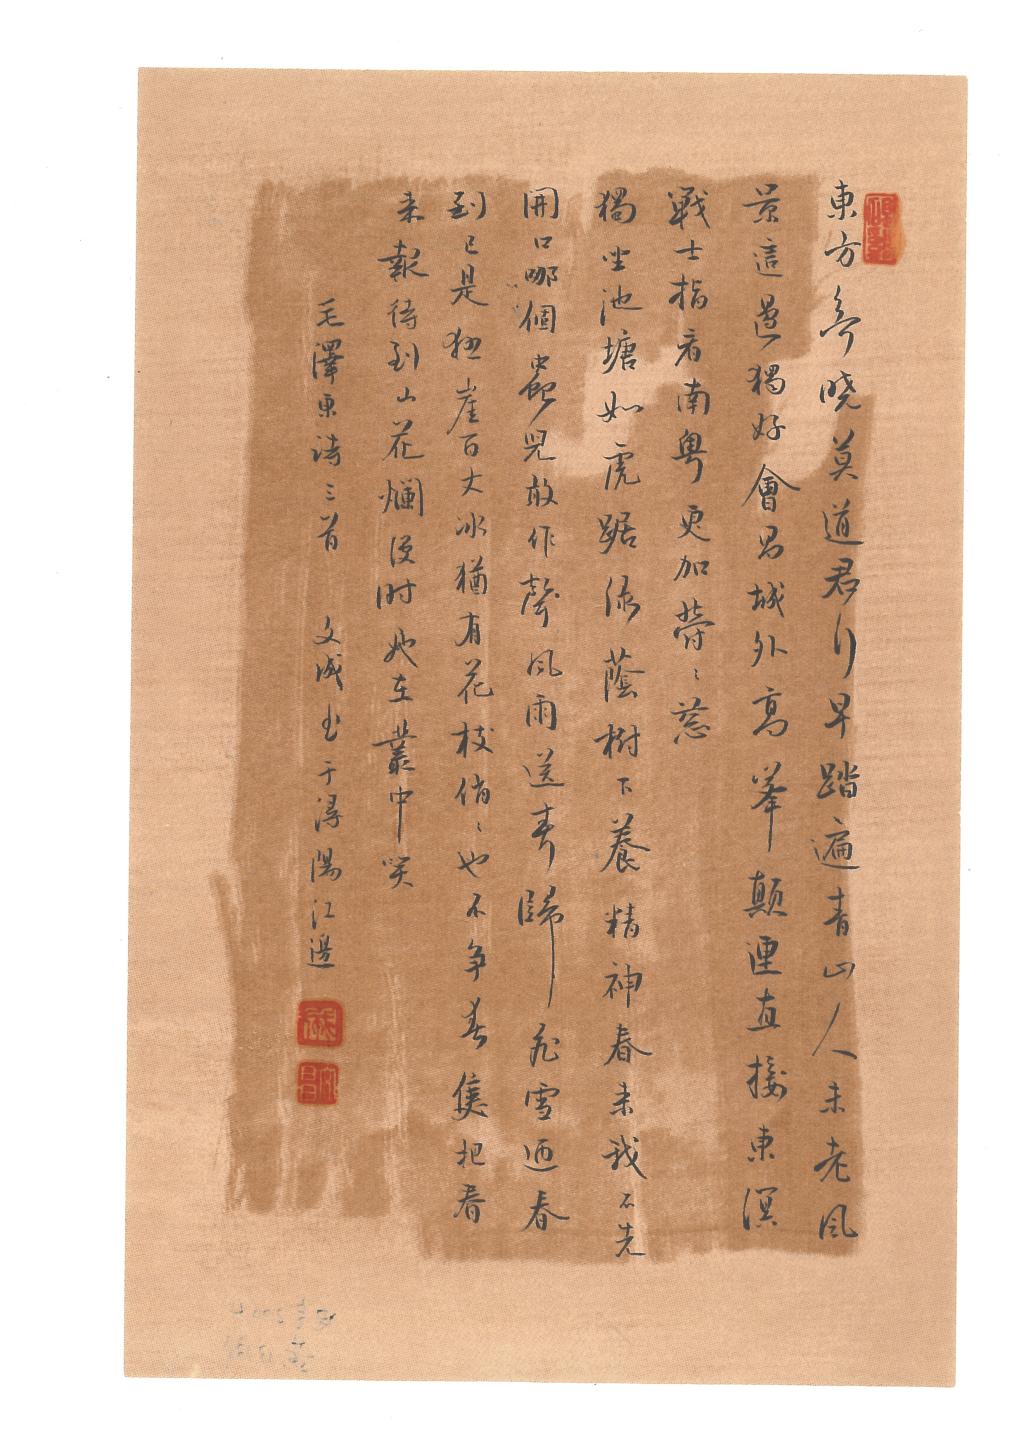 東方欲曉莫道君行早踏遍青山人未老風
景這邊獨好會昌城外高峯顛連直接東溟
戰士指看南粵更加鬱〻葱
獨坐池塘如虎踞綠蔭樹下養精神春來我不先
開口哪個蟲兒敢作聲風雨送春歸飛雪迎春
到已是懸崖百丈冰猶有花枝俏〻也不爭春隻把春
來報待到山花爛漫時她在叢中笑
毛澤東詩三首 文成書于潯陽江邊